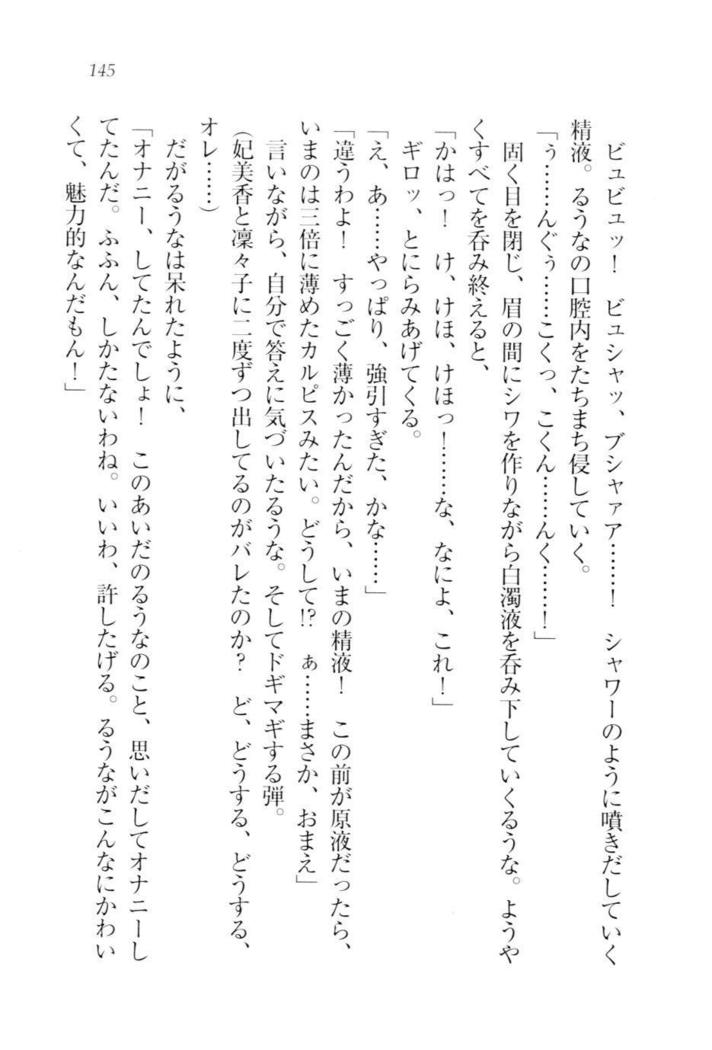 145
ビュビュッ！　ビュシャッ、ブシャァア……！　シャワーのように噴きだしていく
精液。るうなの口腔内をたちまち侵していく。
「ぅ……んぐぅ……こくっ、こくん……んく……！」
固く目を閉じ、眉の間にシワを作りながら白濁液を呑み下していくるうな。ようや
くすべてを呑み終えると、
「かはっ！　け、けほ、けほっ！……な、なによ、これ！」
ギロッ、とにらみあげてくる。
「え、あ……やっぱり、強引すぎた、かな……」
「違うわよ！　すっごく薄かったんだから、いまの精液！　この前が原液だったら、
いまのは三倍に薄めたカルピスみたい。どうして!?　ぁ……まさか、おまえ」
言いながら、自分で答えに気づいたるうな。そしてドギマギする弾。
（妃美香と凜々子に二度ずつ出してるのがバレたのか？　ど、どうする、どうする、
オレ……）
だがるうなは呆れたように、
「オナニー、してたんでしょ！　このあいだのるうなのこと、思いだしてオナニーし
てたんだ。ふふん、しかたないわね。いいわ、許したげる。るうながこんなにかわい
くて、魅力的なんだもん！」